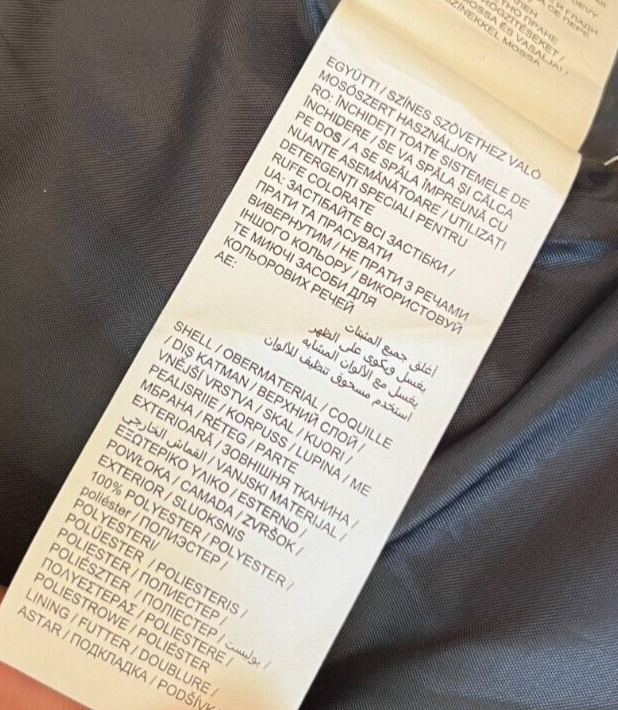 SZÍNEKKEL MOSSA
EGYÜTT! / SZÍNES SZÖVETHEZ VALÓ
MOSÓSZERT HASZNÁLJON
RO: ÎNCHIDEȚI TOATE SISTEMELE DE
ÎNCHIDERE / SE VA SPĂLA ȘI CĂLCA
PE DOS / A SE SPĂLA ÎMPREUNĂ CU
NUANȚE ASEMĂNĂTOARE / UTILIZAȚI
DETERGENȚI SPECIALI PENTRU
RUFE COLORATE
UA: ЗАСТІБАЙТЕ ВСІ ЗАСТІБКИ /
ПРАТИ ТА ПРАСУВАТИ
ВИВЕРНУТИМ / НЕ ПРАТИ З РЕЧАМИ
ІНШОГО КОЛЬОРУ / ВИКОРИСТОВУЙ
ТЕ МИЮЧІ ЗАСОБИ ДЛЯ
КОЛЬОРОВИХ РЕЧЕЙ
AE:
أغلق جميع المثبتات
يغسل ويكوى على الظهر
يغسل مع الألوان المشابه
استخدم مسحوق تنظيف للألوان
SHELL / OBERMATERIAL / COQUILLE
/ DIŞ KATMAN / ВЕРХНИЙ СЛОЙ /
VNĚJŠÍ VRSTVA / SKAL / KUORI /
PEALISRIIE / KORPUSS / LUPINA / ME
МБРАНА / RÉTEG / PARTE
EXTERIOARĂ / ЗОВНІШНЯ ТКАНИНА /
القماش الخارجي / VANJSKI MATERIJAL /
ΕΞΩΤΕΡΙΚΟ ΥΛΙΚΟ / ESTERNO /
POWŁOKA / CAMADA / ZVRŠOK /
EXTERIOR / SLUOKSNIS
100% POLYESTER / POLYESTER /
poliéster / ПОЛИЭСТЕР /
POLYESTERI /
POLÜESTER / POLIESTERIS /
POLIESTER / ПОЛИЕСТЕР /
POLIÉSZTER / ПОЛІЕСТЕР /
ΠΟΛΥΕΣΤΕΡΑΣ / POLIESTERE / بوليست /
POLIESTROWE / POLIÉSTER
LINING / FUTTER / DOUBLURE /
ASTAR / ПОДКЛАДКА / PODŠÍVK